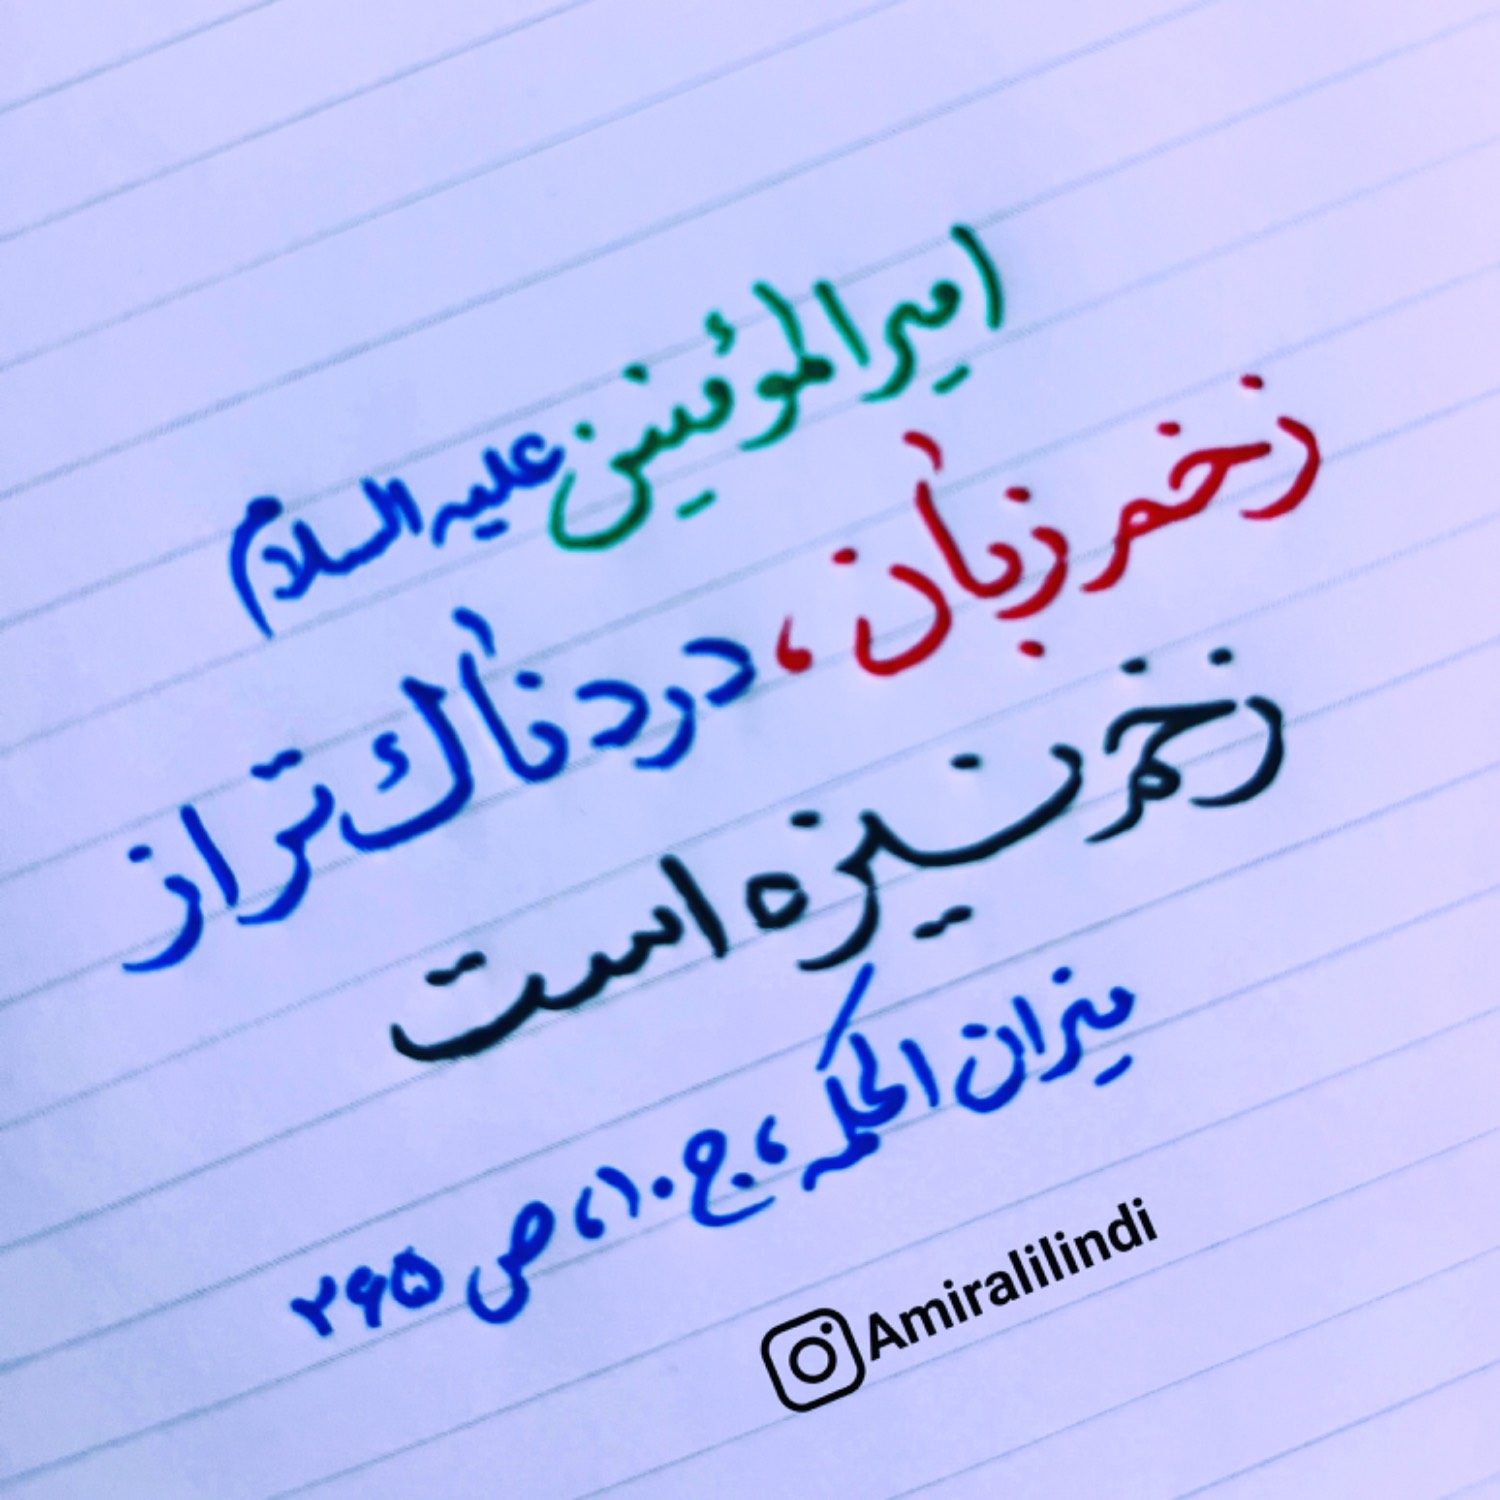 امیرالمؤمنین علیه السلام
زخم زبان، دردناک تر از
زخم نیزه است
میزان الحکمه، ج ۱۰، ص ۲۶۵
Amiralilindi